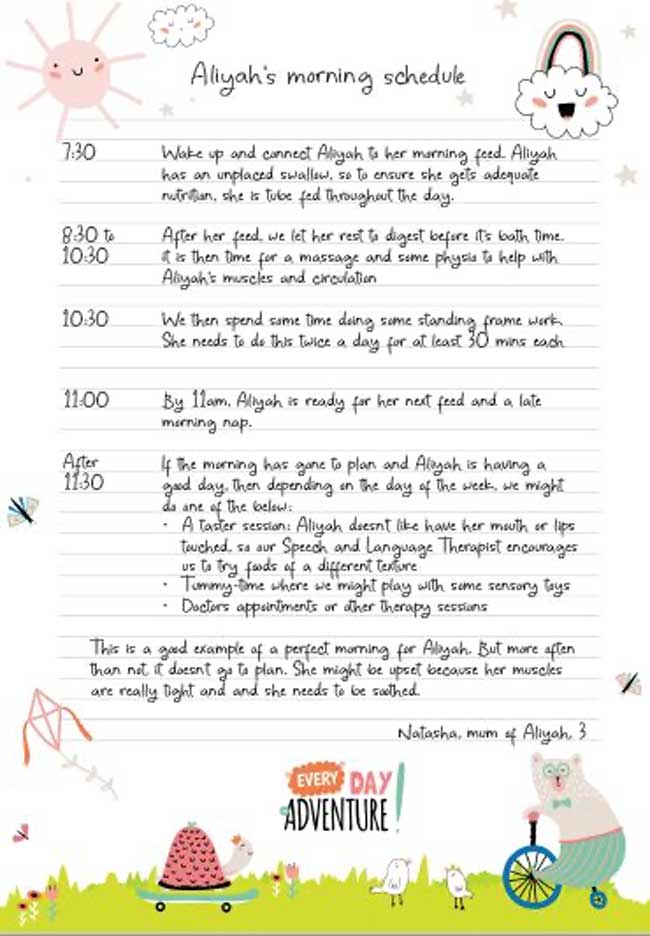 Aliyah's morning schedule
7:30 Wake up and connect Aliyah to her morning feed. Aliyah
has an unplaced swallow, so to ensure she gets adequate
nutrition, she is tube fed throughout the day.
8:30 to After her feed, we let her rest to digest before it's bath time.
10:30 it is then time for a massage and some physio to help with
Aliyah's muscles and circulation
10:30 We then spend some time doing some standing frame work.
She needs to do this twice a day for at least 30 mins each
11:00 By 11am, Aliyah is ready for her next feed and a late
morning nap.
After If the morning has gone to plan and Aliyah is having a
11:30 good day, then depending on the day of the week, we might
do one of the below:
· A taster session: Aliyah doesnt like have her mouth or lips
touched, so our Speech and Language Therapist encourages
us to try foods of a different texture
· Tummy-time where we might play with some sensory toys
· Doctors appointments or other therapy sessions
This is a good example of a perfect morning for Aliyah. But more often
than not, it doesn't go to plan. She might be upset because her muscles
are really tight and and she needs to be soothed.
Natasha, mum of Aliyah, 3
EVERY DAY
ADVENTURE!